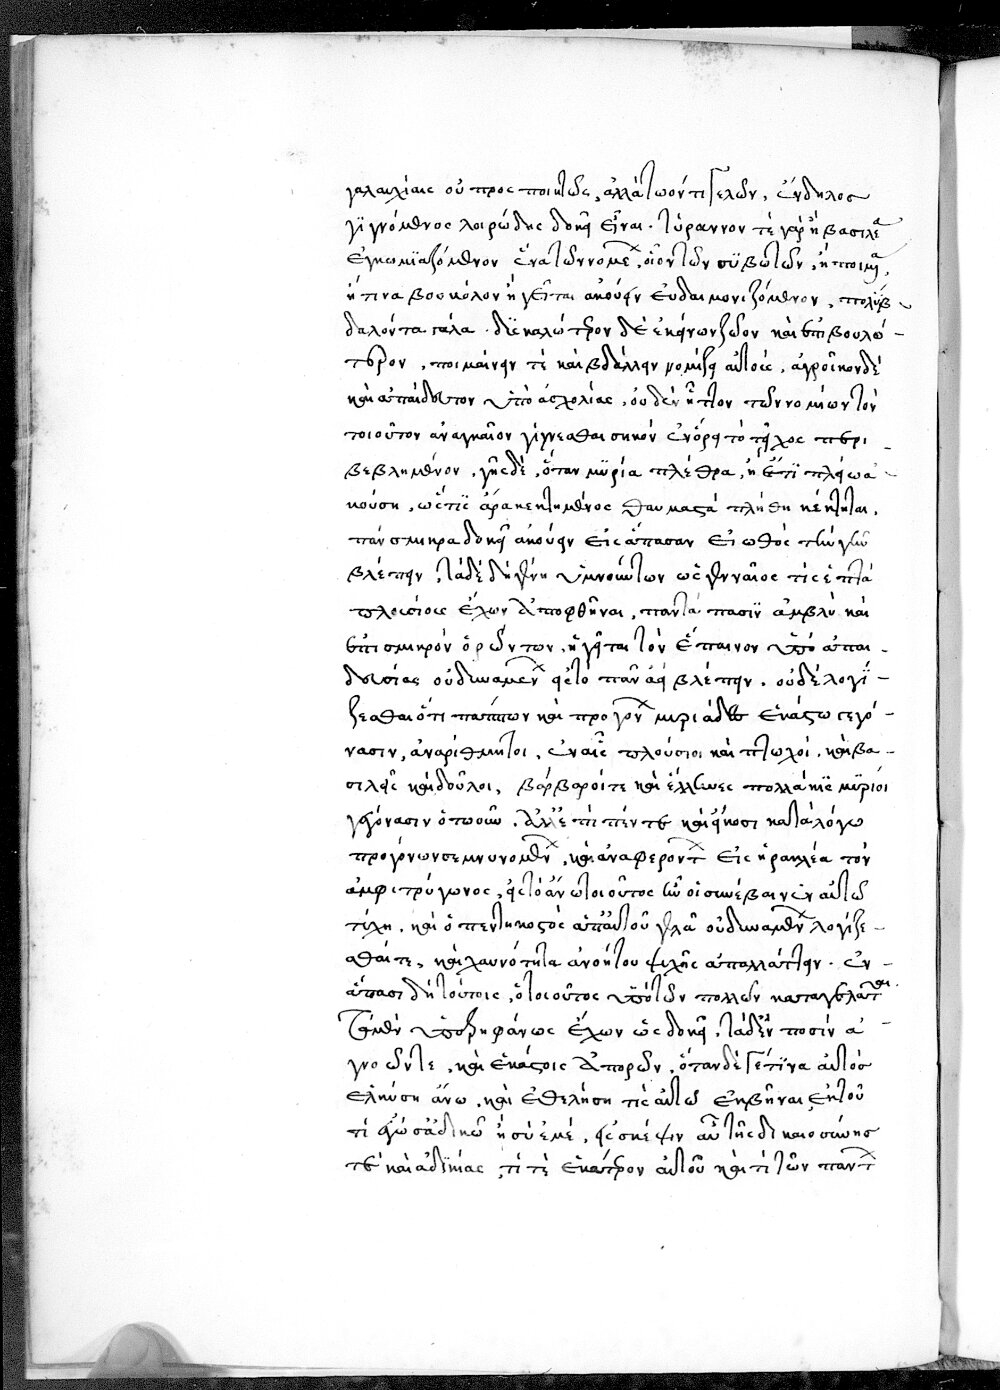 γαλαυχίαις οὐ προσποιήτως, ἀλλὰ τῶ ὄντι γελῶν, ἔνδηλος
γιγνόμενος ληρώδης δοκεῖ εἶναι. τύραννόν τε γὰρ ἢ βασιλέα
ἐγκωμιαζόμενον ἕνα τῶν νομέων, οἷον τῶν συβωτῶν, ἢ ποιμένα,
ἤ τινα βουκόλον ἡγεῖται ἀκούειν εὐδαιμονιζόμενον, πολὺ β
δάλλοντα γάλα. δυσκολώτερον δὲ ἐκείνων ζῶον καὶ ἐπιβουλό
τερον, ποιμαίνειν τὲ καὶ βδάλλειν νομίζει αὐτοὺς, ἄγροικον δὲ
καὶ ἀπαίδευτον ὑπὸ ἀσχολίας, οὐδὲν ἧττον τῶν νομέων τὸν
τοιοῦτον ἀναγκαῖον γίγνεσθαι σηκὸν ἐν ὄρει τὸ τεῖχος περι
βεβλημένον, γῆς δὲ, ὅταν μυρία πλέθρα, ἢ ἔτι πλείω ἀ
κούση, ὥς τις ἄρα κεκτημένος θαυμαστὰ πλήθη κέκτηται,
πάνσμικρα δοκεῖ ἀκούειν εἰς ἅπασαν εἰωθὸς τὴν γῆν
βλέπειν, τὰ δὲ δὴ γένη ὑμνούντων ὡς γενναῖός τις ἑπτὰ
πλουσίους ἔχων ἀποφῆναι, παντάπασιν ἀμβλὺ καὶ
ἐπὶ σμικρὸν ὁρώντων, ἡγεῖται τὸν ἔπαινον ὑπὸ ἀπαι
δευσίας οὐ δυναμένων εἰς τὸ πᾶν ἀεὶ βλέπειν. οὐδὲ λογί
ζεσθαι ὅτι πάππων καὶ προγόνων μυριάδες ἑκάστω γεγό
νασιν, ἀναρίθμητοι, ἐν αἷς πλούσιοι καὶ πτωχοί, καὶ βα
σιλεῖς καὶ δοῦλοι, βάρβαροί τε καὶ ἕλληνες πολλάκις μυρίοι
γεγόνασιν ὁτωοῦν. ἀλλ' ἐπὶ πέντε καὶ εἴκοσι καταλόγω
προγόνων σεμνυνομένων, καὶ ἀναφερόντων εἰς ἡρακλέα τὸν
ἀμφιτρύωνος, εἰς τὸ ἄνω τοιοῦτος ἦν οἵα συνέβαινεν αὐτῶ
τύχη, καὶ ὁ πεντηκοστὸς ἀπ' αὐτοῦ γελᾶ οὐ δυναμένων λογίζε
σθαί τε, καὶ χαυνότητα ἀνοήτου ψυχῆς ἀπαλλάττειν. ἐν
ἅπασι δὴ τούτοις, ὁ τοιοῦτος ὑπὸ τῶν πολλῶν καταγελᾶται.
τὰ μὲν ὑπερηφάνως ἔχων ὡς δοκεῖ, τὰ δ' ἐν ποσὶν ἀ
γνοῶν τε, καὶ ἑκάστοις ἀπορῶν, ὅταν δέ γέ τινα αὐτὸς
ἑλκύση ἄνω, καὶ ἐθελήση τὶς αὐτῶ ἐκβῆναι ἐκ τοῦ
τί ἐγὼ σὲ ἀδικῶ ἢ σὺ ἐμέ, εἰς σκέψιν αὐτῆς δικαιοσύνης
τε καὶ ἀδικίας, τί τὲ ἑκάτερον αὐτοῦ καὶ τί τῶν πάντων